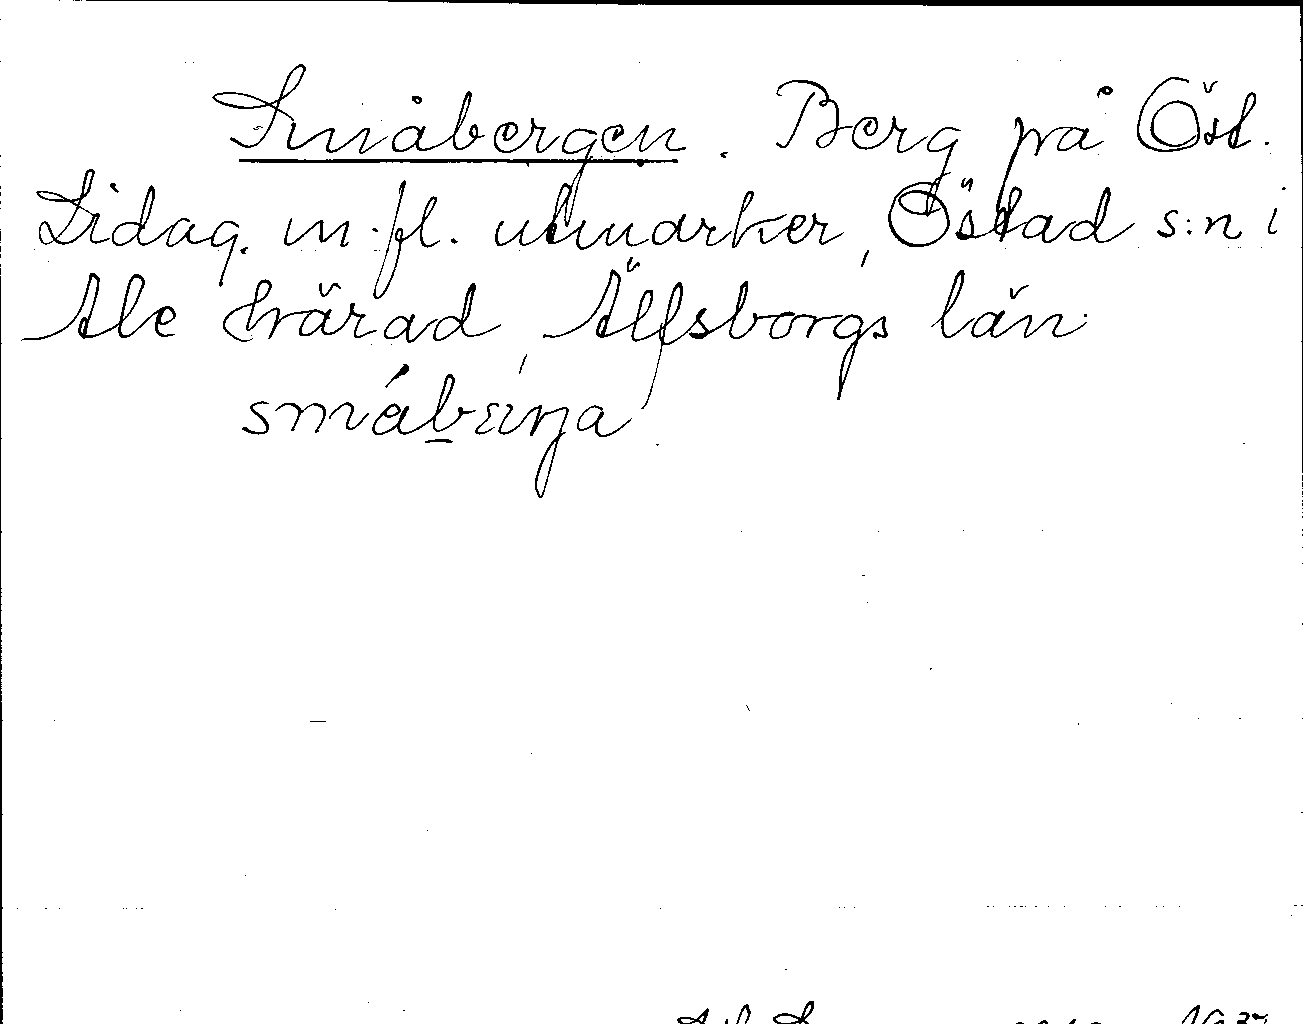 Småbergen. Berg på Öst.
Lidag. m. fl. utmarker, Östad s:n i
Ale härad, Älfsborgs län.
småbærja